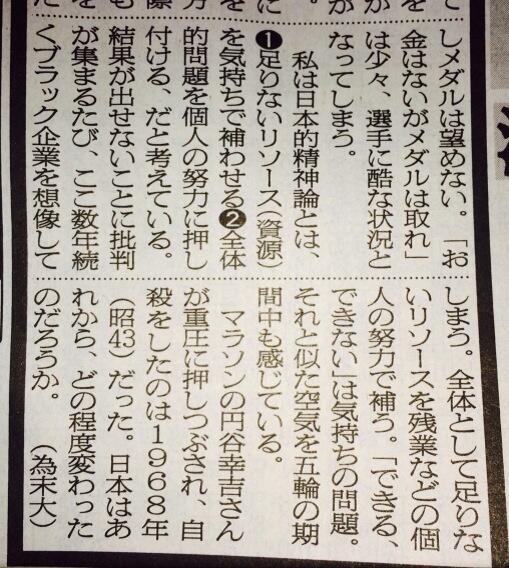 しメダルは望めない。「お
金はないがメダルは取れ」
は少々、選手に酷な状況と
なってしまう。
　私は日本的精神論とは、
❶足りないリソース(資源)
を気持ちで補わせる❷全体
的問題を個人の努力に押し
付ける、だと考えている。
結果が出せないことに批判
が集まるたび、ここ数年続
くブラック企業を想像して
しまう。全体として足りな
いリソースを残業などの個
人の努力で補う。「できる、
できない」は気持ちの問題。
それと似た空気を五輪の期
間中も感じている。
　マラソンの円谷幸吉さん
が重圧に押しつぶされ、自
殺をしたのは1968年
(昭43)だった。日本はあ
れから、どの程度変わった
のだろうか。　(為末大)